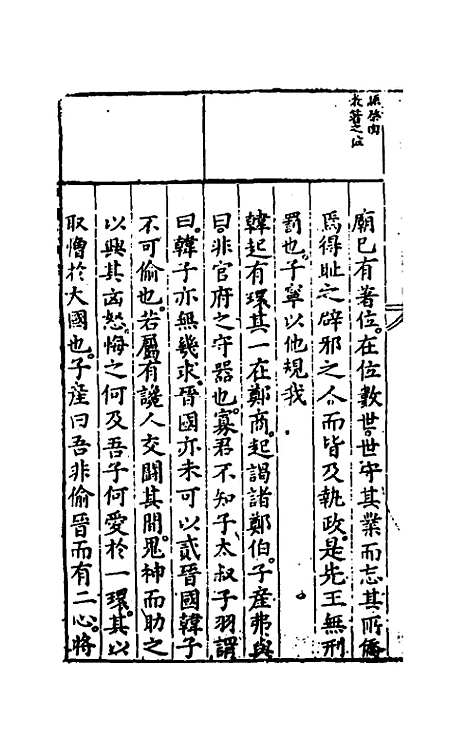 廟巳有著位。在位數世。世守其業。而忘其所。僑
焉得耻之。辟邪之人。而皆及執政。是先王無刑
罰也。子寧以他規我
韓起有環。其一在鄭商。起謁諸鄭伯。子產弗與
曰。非官府之守器也。寡君不知。子太叔子羽謂
曰。韓子亦無幾求。晉國亦未可以貳。晉國韓子
不可偷也。若屬有讒人交鬪其間。鬼神而助之
以興其凶怒。悔之何及。吾子何愛於一環。其以
取憎於大國也。子產曰吾非偷晉而有二心。將